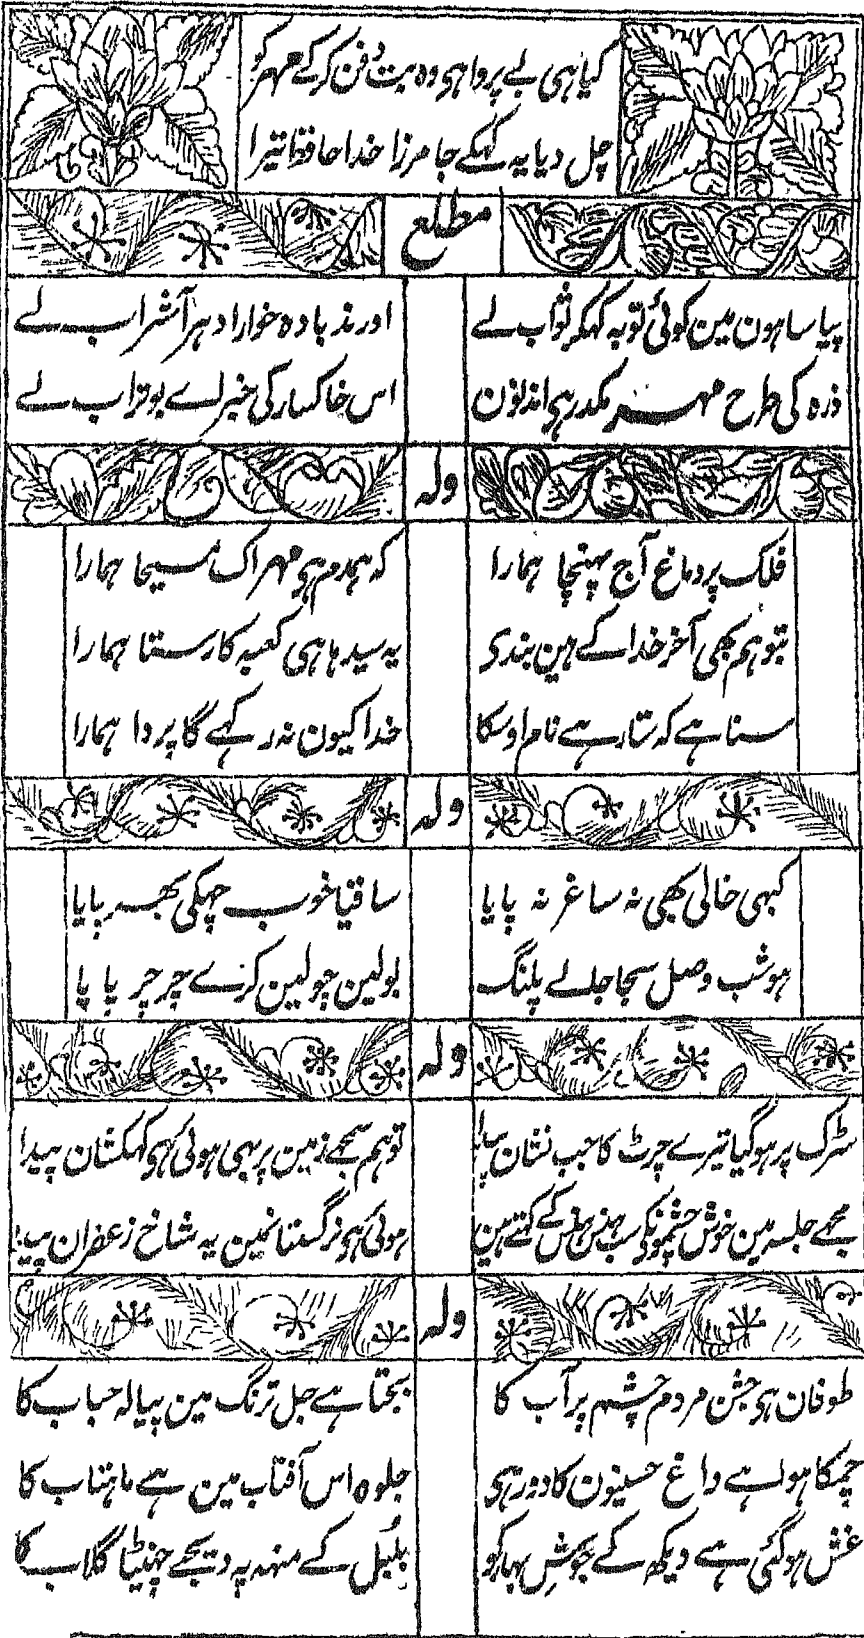 کیا ہی بے پروا ہی وہ بت دفن کرکے مہر کو
چل دیا یہ کہکے جا مرزا خدا حافظ تیرا
مطلع
پیاسا ہون مین کوئی توبہ کہکر ثواب لے
اور ند بادہ خوار ادہر آ شراب لے
ذرہ کی طرح مہر مکدر ہی اندنون
اس خاکسار کی خبر اے بوتراب لے
ولہ
فلک پر دماغ آج پہنچا ہمارا
کہ ہمدم ہی مہر اک مسیحا ہمارا
بتو ہم بھی آخر خدا کے ہین بندی
یہ سیدہا ہی کعبہ کا رستا ہمارا
سنا ہے کہ ستار ہے نام اوسکا
خدا کیون نہ رکہے گا پردا ہمارا
ولہ
کبہی خالی بھی نہ ساغر نہ پایا
ساقیا خوب چہکی بھر پایا
ہو شب وصل سجا جلے پلنگ
بولین چولین کرے چر چر پا پا
ولہ
سڑک پر ہو گیا تیرے چرٹ کا جب نشان پیدا
تو ہم سمجھے زمین پر بہی ہوئی ہی کہکشان پیدا
مجھے جلسہ مین خوش چشمونکی سب ہنس ہنس کے کہتے ہین
ہوئی ہی نرگستانمین یہ شاخ زعفران پیدا
ولہ
طوفان ہی جشن مردم چشم پر آب کا
بجتا ہے جل ترنگ مین پیالہ حباب کا
چمکا ہوا ہے داغ حسینون کا دور ہی
جلوہ اس آفتاب مین ہے ماہتاب کا
غش ہو گئی ہے دیکھ کے جوش بہار کو
بلبل کے منہہ پہ دیجے چہنیٹا گلاب کا